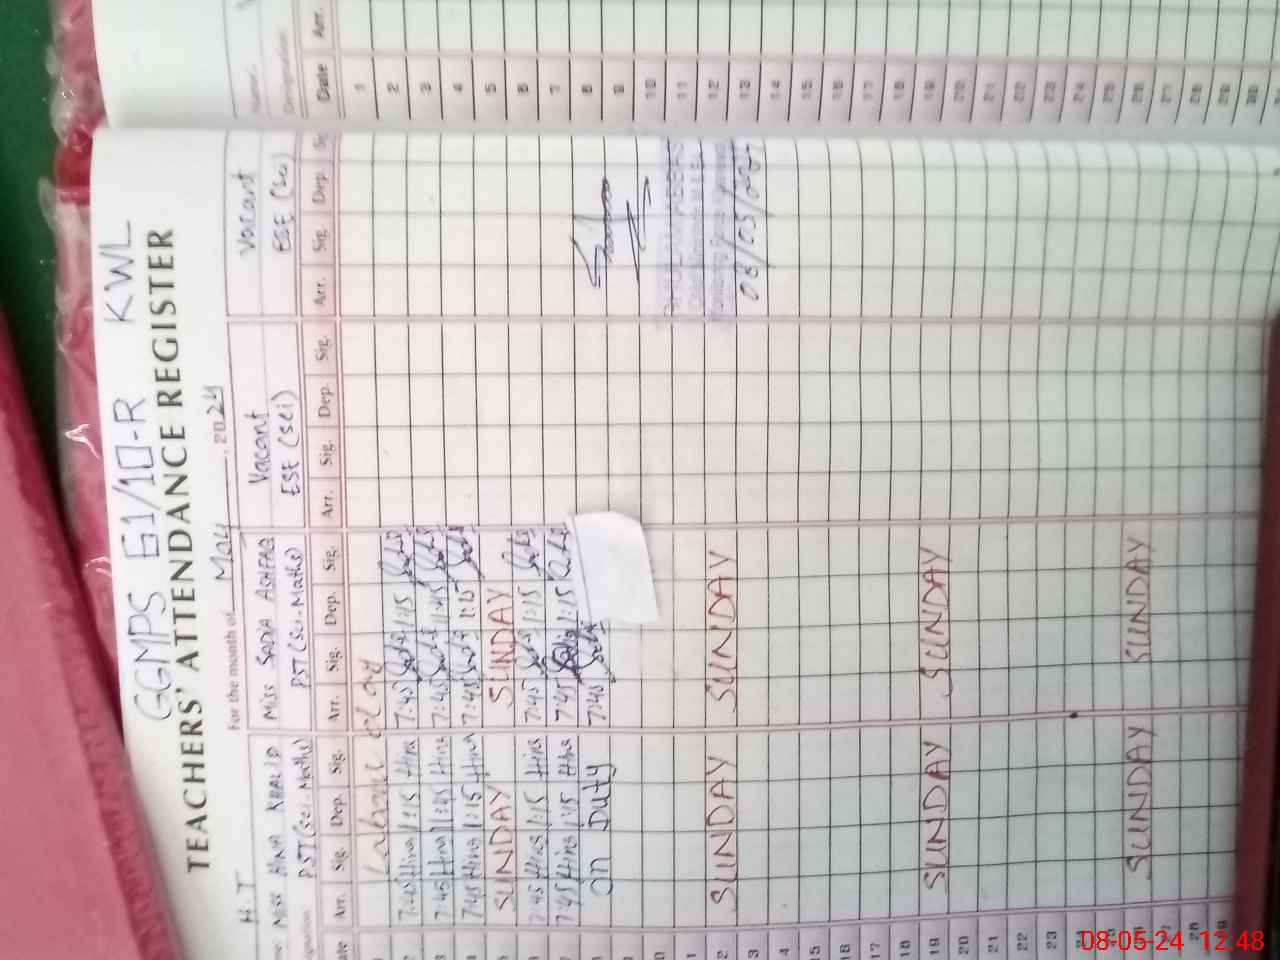 GGMPS 61/10-R KWL
TEACHERS' ATTENDANCE REGISTER
For the month of May, 2024
H.T
Miss HINA KHALID Miss SADIA ASHFAQ Vacant Vacant
PST(sci.Maths) PST(sci-Maths) ESE (sci) ESE (sci)
Date Arr. Sig. Dep. Sig. Arr. Sig. Dep. Sig. Arr. Sig. Dep. Sig. Arr. Sig. Dep.
Labour Day
7:45 Hina 1:15 Hina 7:45 1:15
7:45 Hina 1:45 Hina 7:45 1:45
7:45 Hina 1:15 Hina 7:45 1:15
SUNDAY SUNDAY
7:45 Hina 1:15 Hina 7:45 1:15
7:45 Hina 1:15 Hina 7:45 1:15
on Duty 7:45
08/05/2024
12 SUNDAY SUNDAY
13
14
15
16
17
18
19 SUNDAY SUNDAY
20
21
22
23
24
25
26 SUNDAY SUNDAY
27
28
29
Name
Designation
Date Arr.
1
2
3
4
5
6
7
8
9
10
11
12
13
14
15
16
17
18
19
20
21
22
23
24
25
26
27
28
29
30
08-05-24 12:48